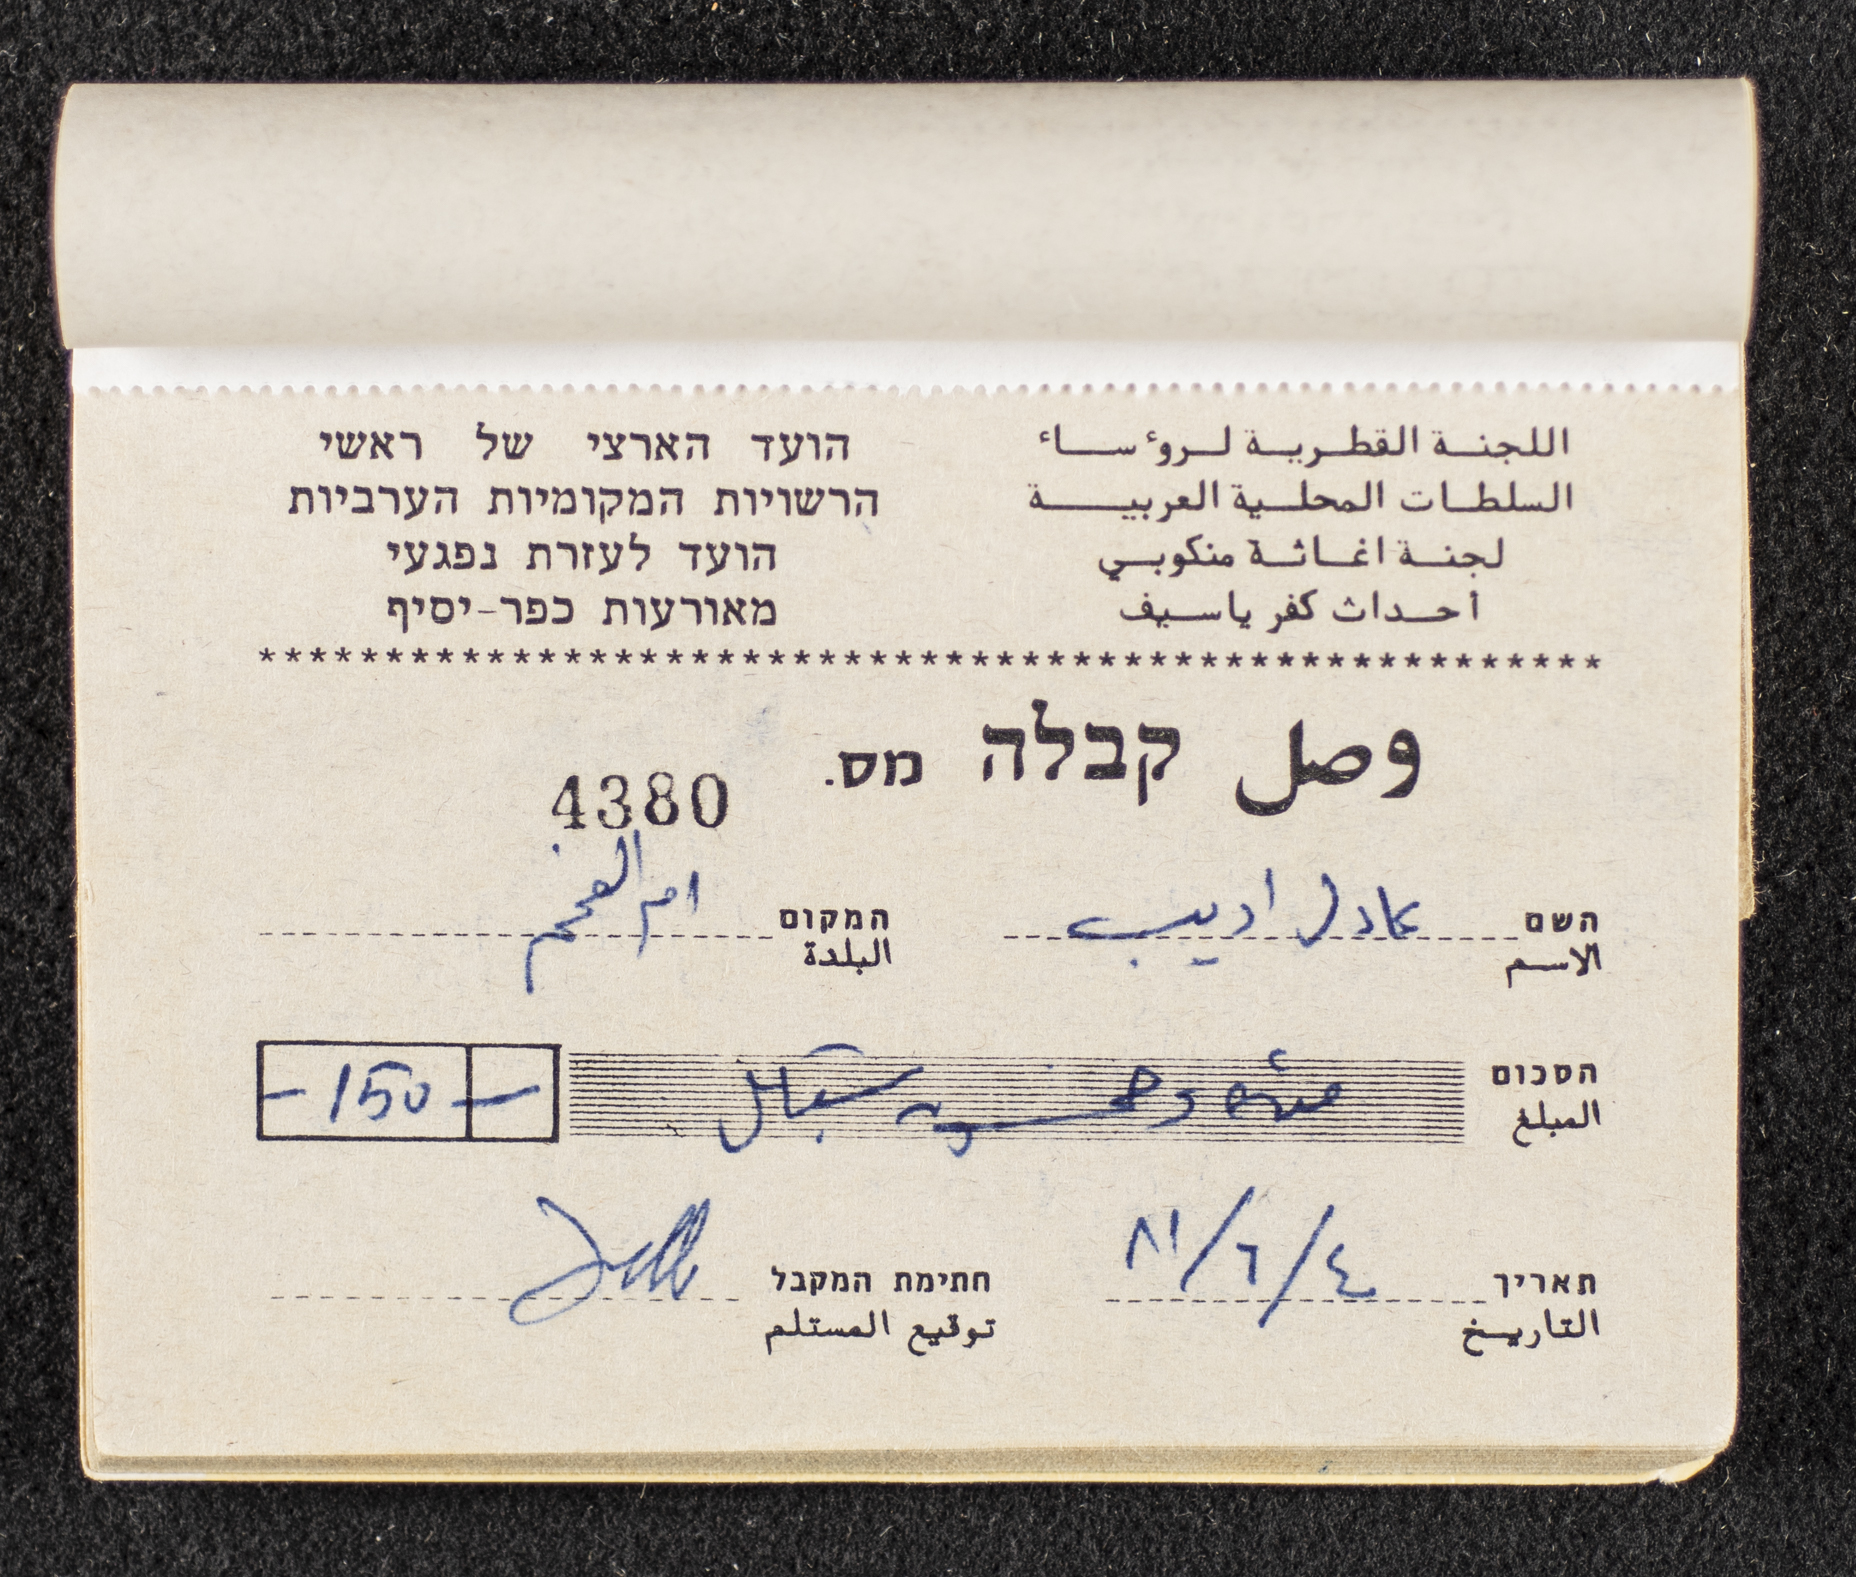 اللجنة القطرية لروءساء
السلطات المحلية العربية
لجنة اغاثة منكوبي
أحداث كفر ياسيف
הועד הארצי של ראשי
הרשויות המקומיות הערביות
הועד לעזרת נפגעי
מאורעות כפר-יסיף
*****************************************************
وصل קבלה מס. 4380
השם عادل اديب
الاسم
המקום ام الفحم
البلدة
הסכום مئة وخمسون شيكل
المبلغ
-150- -
תאריך ٤/٦/٨١
التاريخ
חתימת המקבל
توقيع المستلم